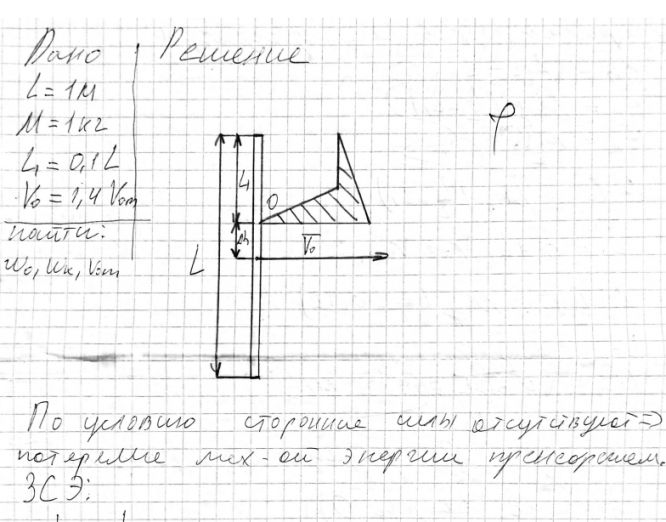 Дано Решение
L = 1м
M = 1кг
L₁ = 0,1L
V₀ = 1,4 V₀m
найти:
w₀, wк, V₀m
φ
L₁
O
Δh
V₀
L
По условию сторонние силы отсутствуют =>
потерями мех-ой энергии пренебрегаем.
ЗСЭ: